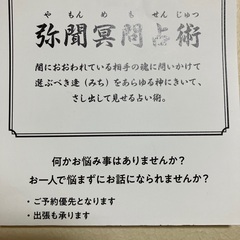 や もん め も せん じゅつ
弥聞冥問占術
闇におおわれている相手の魂に問いかけて
選ぶべき逵（みち）をあらゆる神にきいて、
さし出して見せる占い術。
何かお悩み事はありませんか？
お一人で悩まずにお話になられませんか？
・ご予約優先となります
・出張も承ります